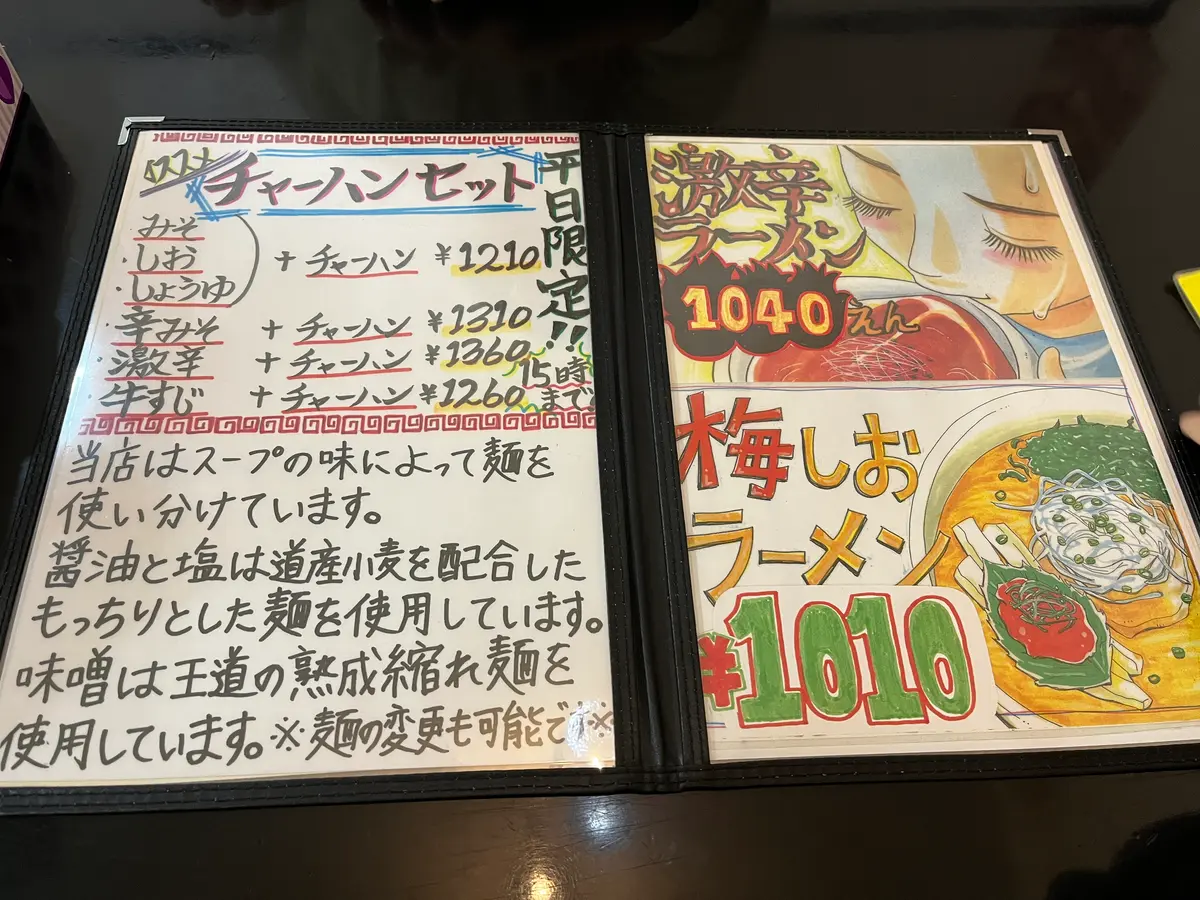 オススメ
チャーハンセット
平日限定!!
15時
まで
・みそ
・しお
・しょうゆ
+ チャーハン ¥1210
・辛みそ + チャーハン ¥1310
・激辛 + チャーハン ¥1360
・牛すじ + チャーハン ¥1260
当店はスープの味によって麺を
使い分けています。
醤油と塩は道産小麦を配合した
もっちりとした麺を使用しています。
味噌は王道の熟成縮れ麺を
使用しています。※麺の変更も可能です※
激辛
ラーメン
1040えん
梅しお
ラーメン
¥1010